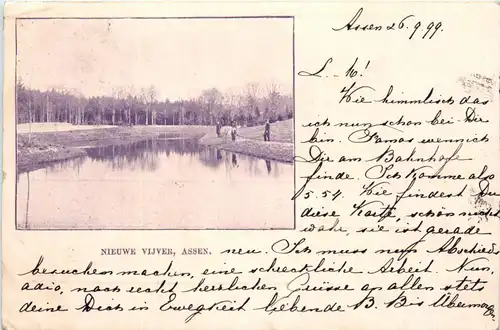 Assen 26.9.99.
L. W!
Wie himmlisch das
ich nun schon bei Dir
bin. Famos wenn ich
Dir am Bahnhofe
finde. Ich komme also
5.54. Wie findest Du
diese Karte, schön nicht
wahr, sie ist gerade
NIEUWE VIJVER, ASSEN.
neu. Ich muss nun Abschieds
besuchen machen, eine schreckliche Arbeit. Nun,
adio, noch recht herzlichen Grüsse an allen stets
deine Dich in Ewigkeit liebende B. Bis Übermorgen